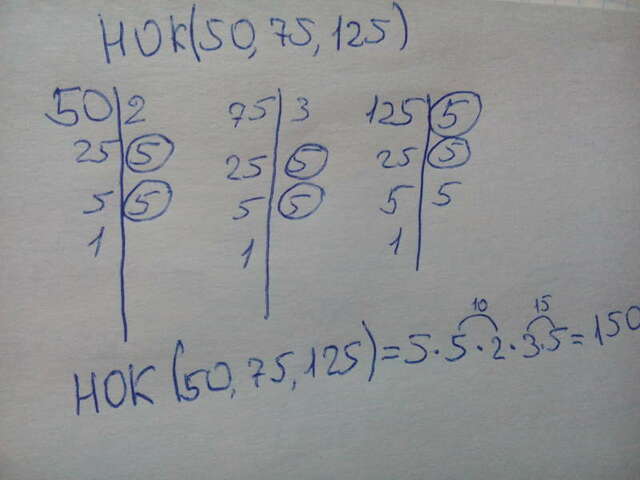 НОК(50, 75, 125)
50 2 75 3 125 5
25 5 25 5 25 5
5 5 5 5 5 5
1 1 1
10 15
НОК (50, 75, 125) = 5 · 5 · 2 · 3 · 5 = 150